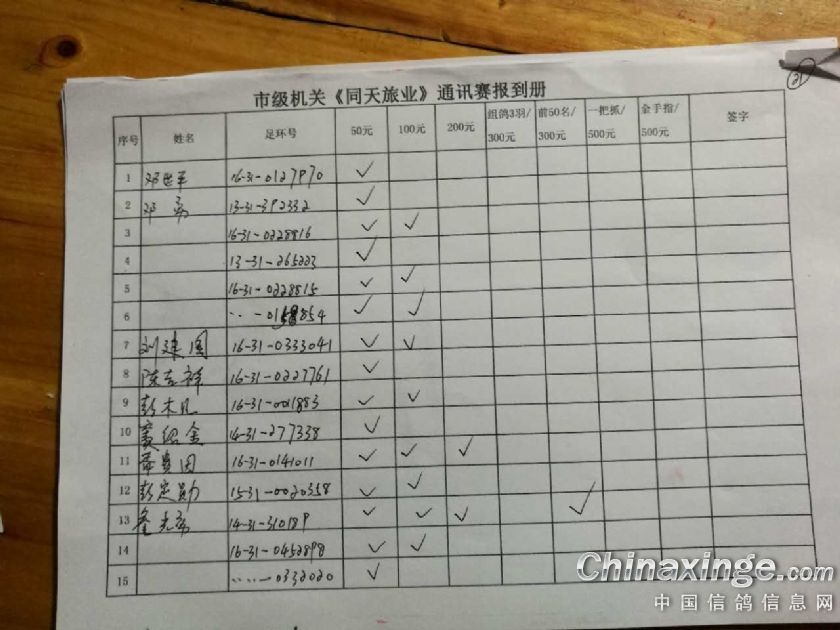 21
市级机关《同天旅业》通讯赛报到册
序号 姓名 足环号 50元 100元 200元 组鸽3羽/300元 前50名/300元 一把抓/500元 金手指/500元 签字
1 邓世平 16-31-0127970 ✓
2 邓 13-31-392332 ✓
3 16-31-0228816 ✓ ✓
4 13-31-265223 ✓
5 16-31-0228815 ✓ ✓
6 ‥-0158854 ✓ ✓
7 刘建国 16-31-0333041 ✓ ✓
8 陈吉祥 16-31-0227761 ✓
9 彭木凡 16-31-001883 ✓ ✓
10 绍金 14-31-277338 ✓
11 贵因 16-31-0141011 ✓ ✓ ✓
12 彭定勋 15-31-0020358 ✓ ✓
13 14-31-310189 ✓ ✓ ✓ ✓
14 16-31-0452898 ✓ ✓
15 ‥‥-0332020 ✓
Chinaxinge.com
中国信鸽信息网